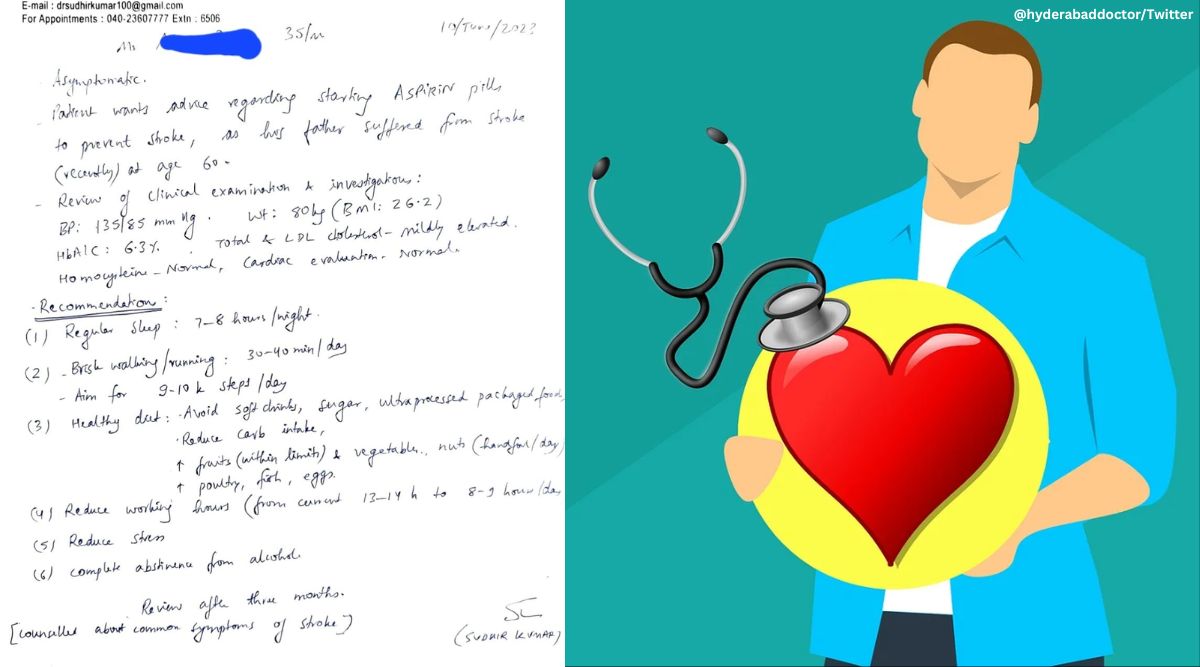 E-mail : drsudhirkumar100@gmail.com
For Appointments : 040-23607777 Extn : 6506
Mr 35/M 10/June/2023
- Asymptomatic.
- Patient wants advice regarding starting ASPIRIN pills
to prevent stroke, as his father suffered from stroke
(recently) at age 60.
- Review of clinical examination & investigations:
BP: 135/85 mm Hg. Wt: 80 kg (BMI: 26.2)
HbA1C: 6.3%. Total & LDL cholesterol - mildly elevated.
Homocysteine - Normal, Cardiac evaluation - Normal.
- Recommendation:
(1) Regular sleep : 7-8 hours/night.
(2) - Brisk walking/running : 30-40 min/day
- Aim for 9-10 k steps/day
(3) Healthy diet: · Avoid soft drinks, sugar, ultraprocessed packaged food,
· Reduce carb intake,
↑ fruits (within limits) & vegetables, nuts (handful/day)
↑ poultry, fish, eggs.
(4) Reduce working hours (from current 13-14 h to 8-9 hours/day
(5) Reduce stress
(6) complete abstinence from alcohol.
Review after three months.
[counselled about common symptoms of stroke]
(SUDHIR KUMAR)
@hyderabaddoctor/Twitter